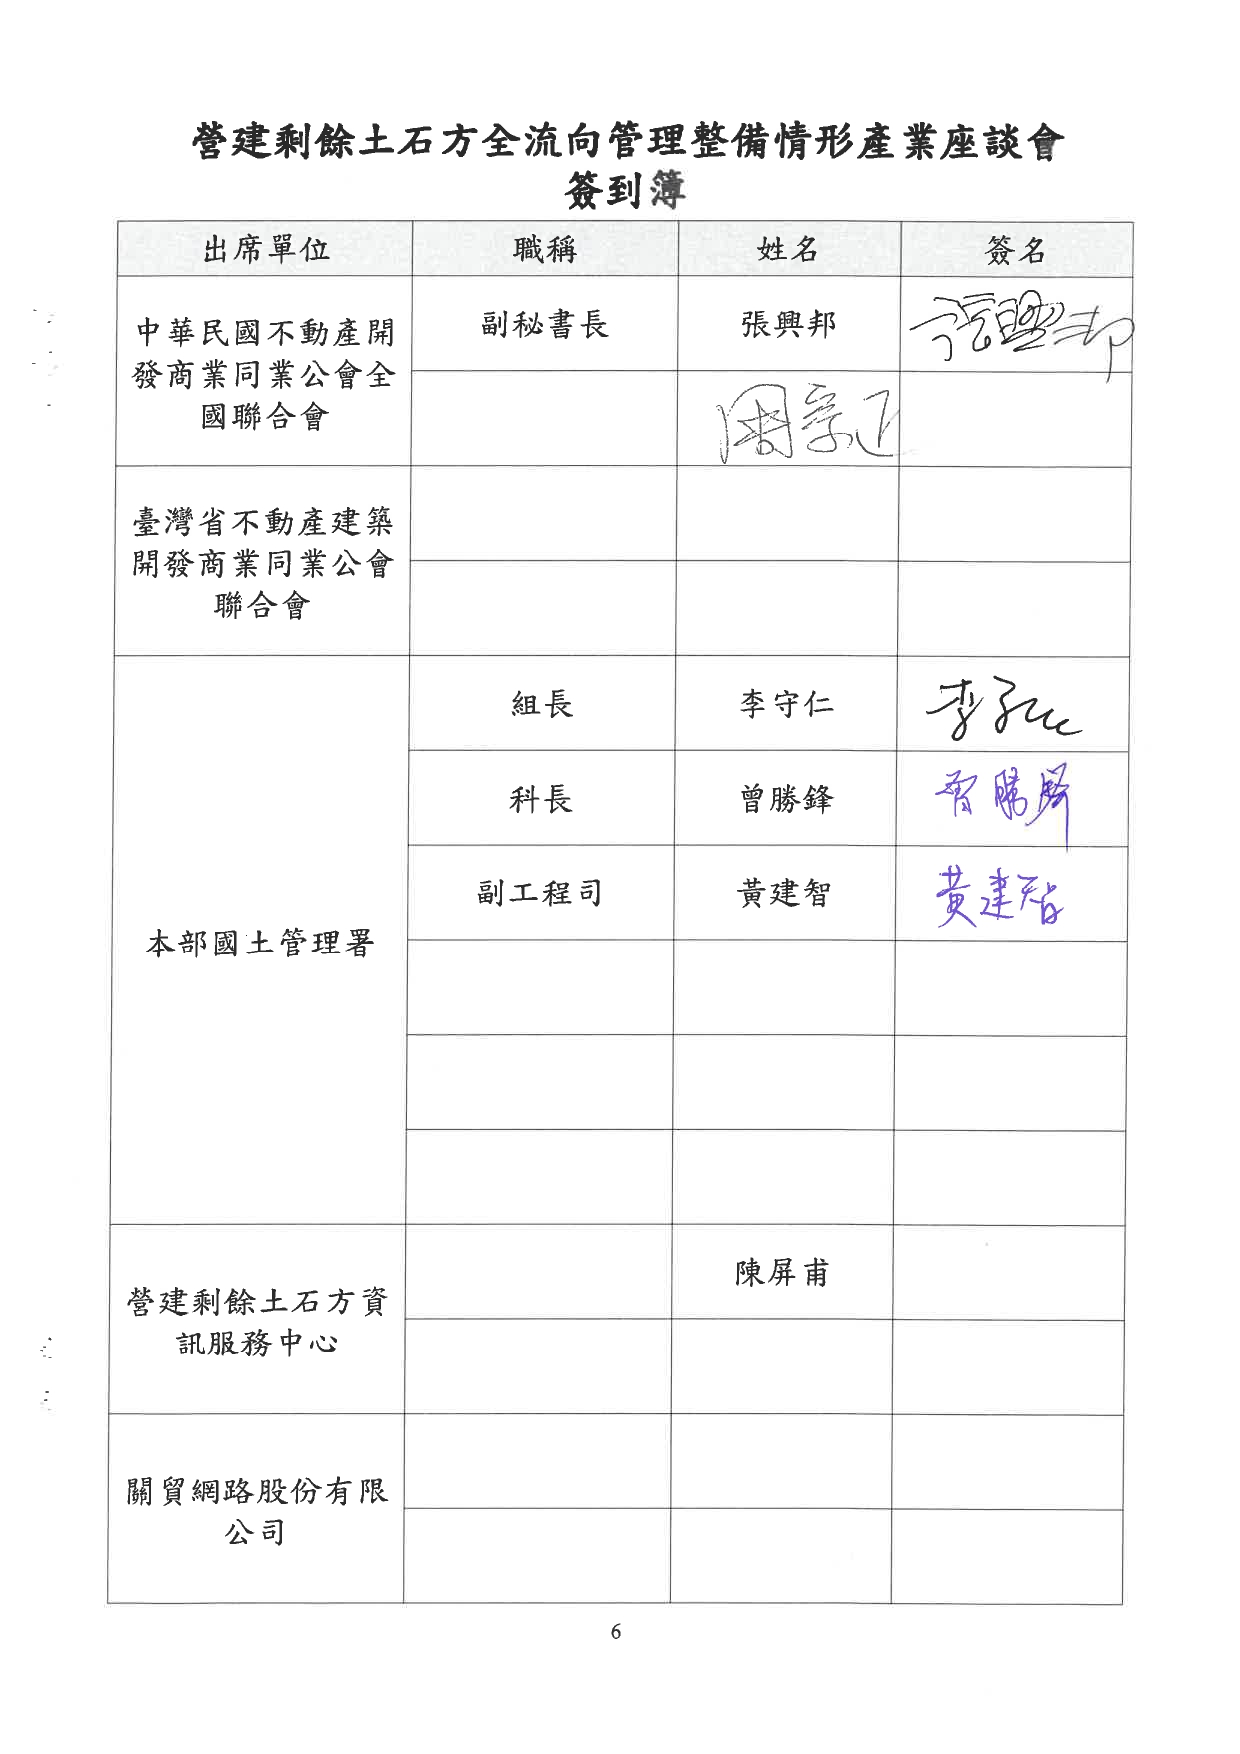 營建剩餘土石方全流向管理整備情形產業座談會
簽到簿
出席單位 職稱 姓名 簽名
中華民國不動產開
發商業同業公會全
國聯合會
副秘書長 張興邦 張興邦
臺灣省不動產建築
開發商業同業公會
聯合會
本部國土管理署
組長 李守仁 李守仁
科長 曾勝鋒 曾勝鋒
副工程司 黃建智 黃建智
營建剩餘土石方資
訊服務中心
陳屏甫
關貿網路股份有限
公司
6